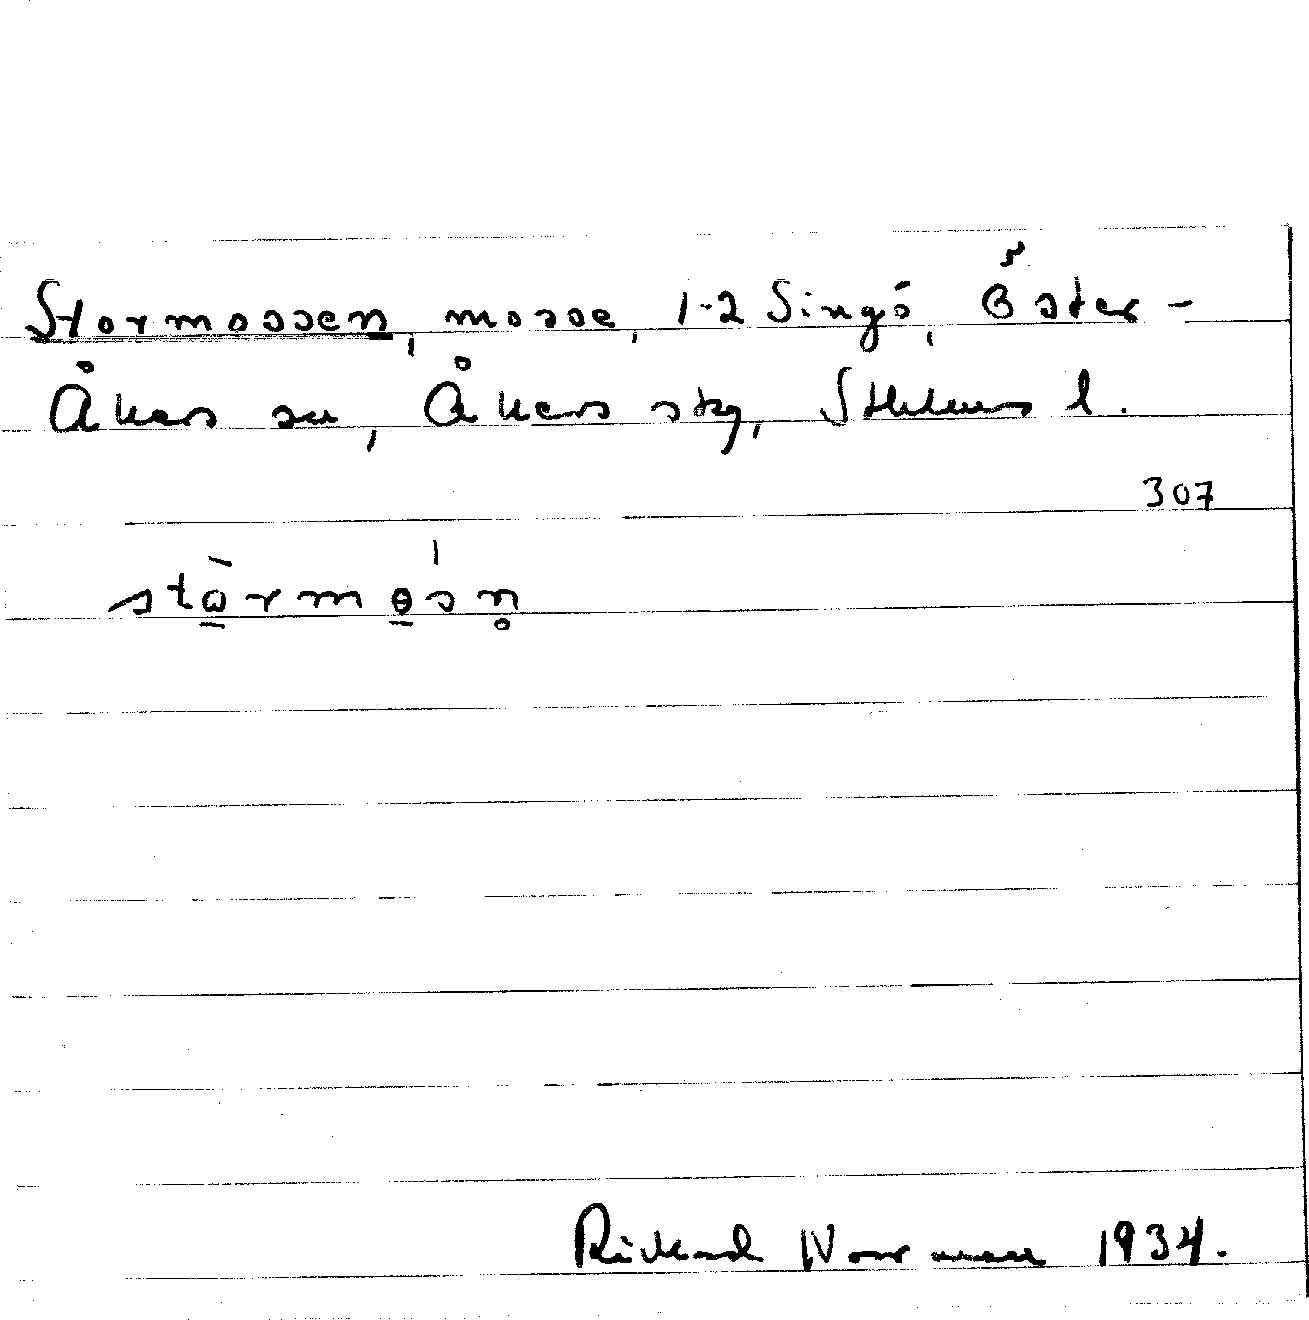 Stormossen, mosse, 1-2 Singö, Öster-
Åkers sn, Åkers skg, Sthlms l.
307
stɷ̀rmɵsn̥
Rickard Norman 1934.